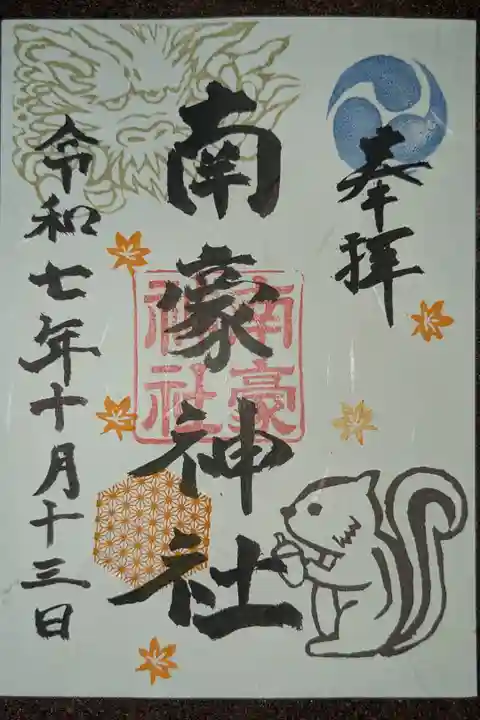 奉拝
南豪神社
南豪神社
令和七年十月十三日